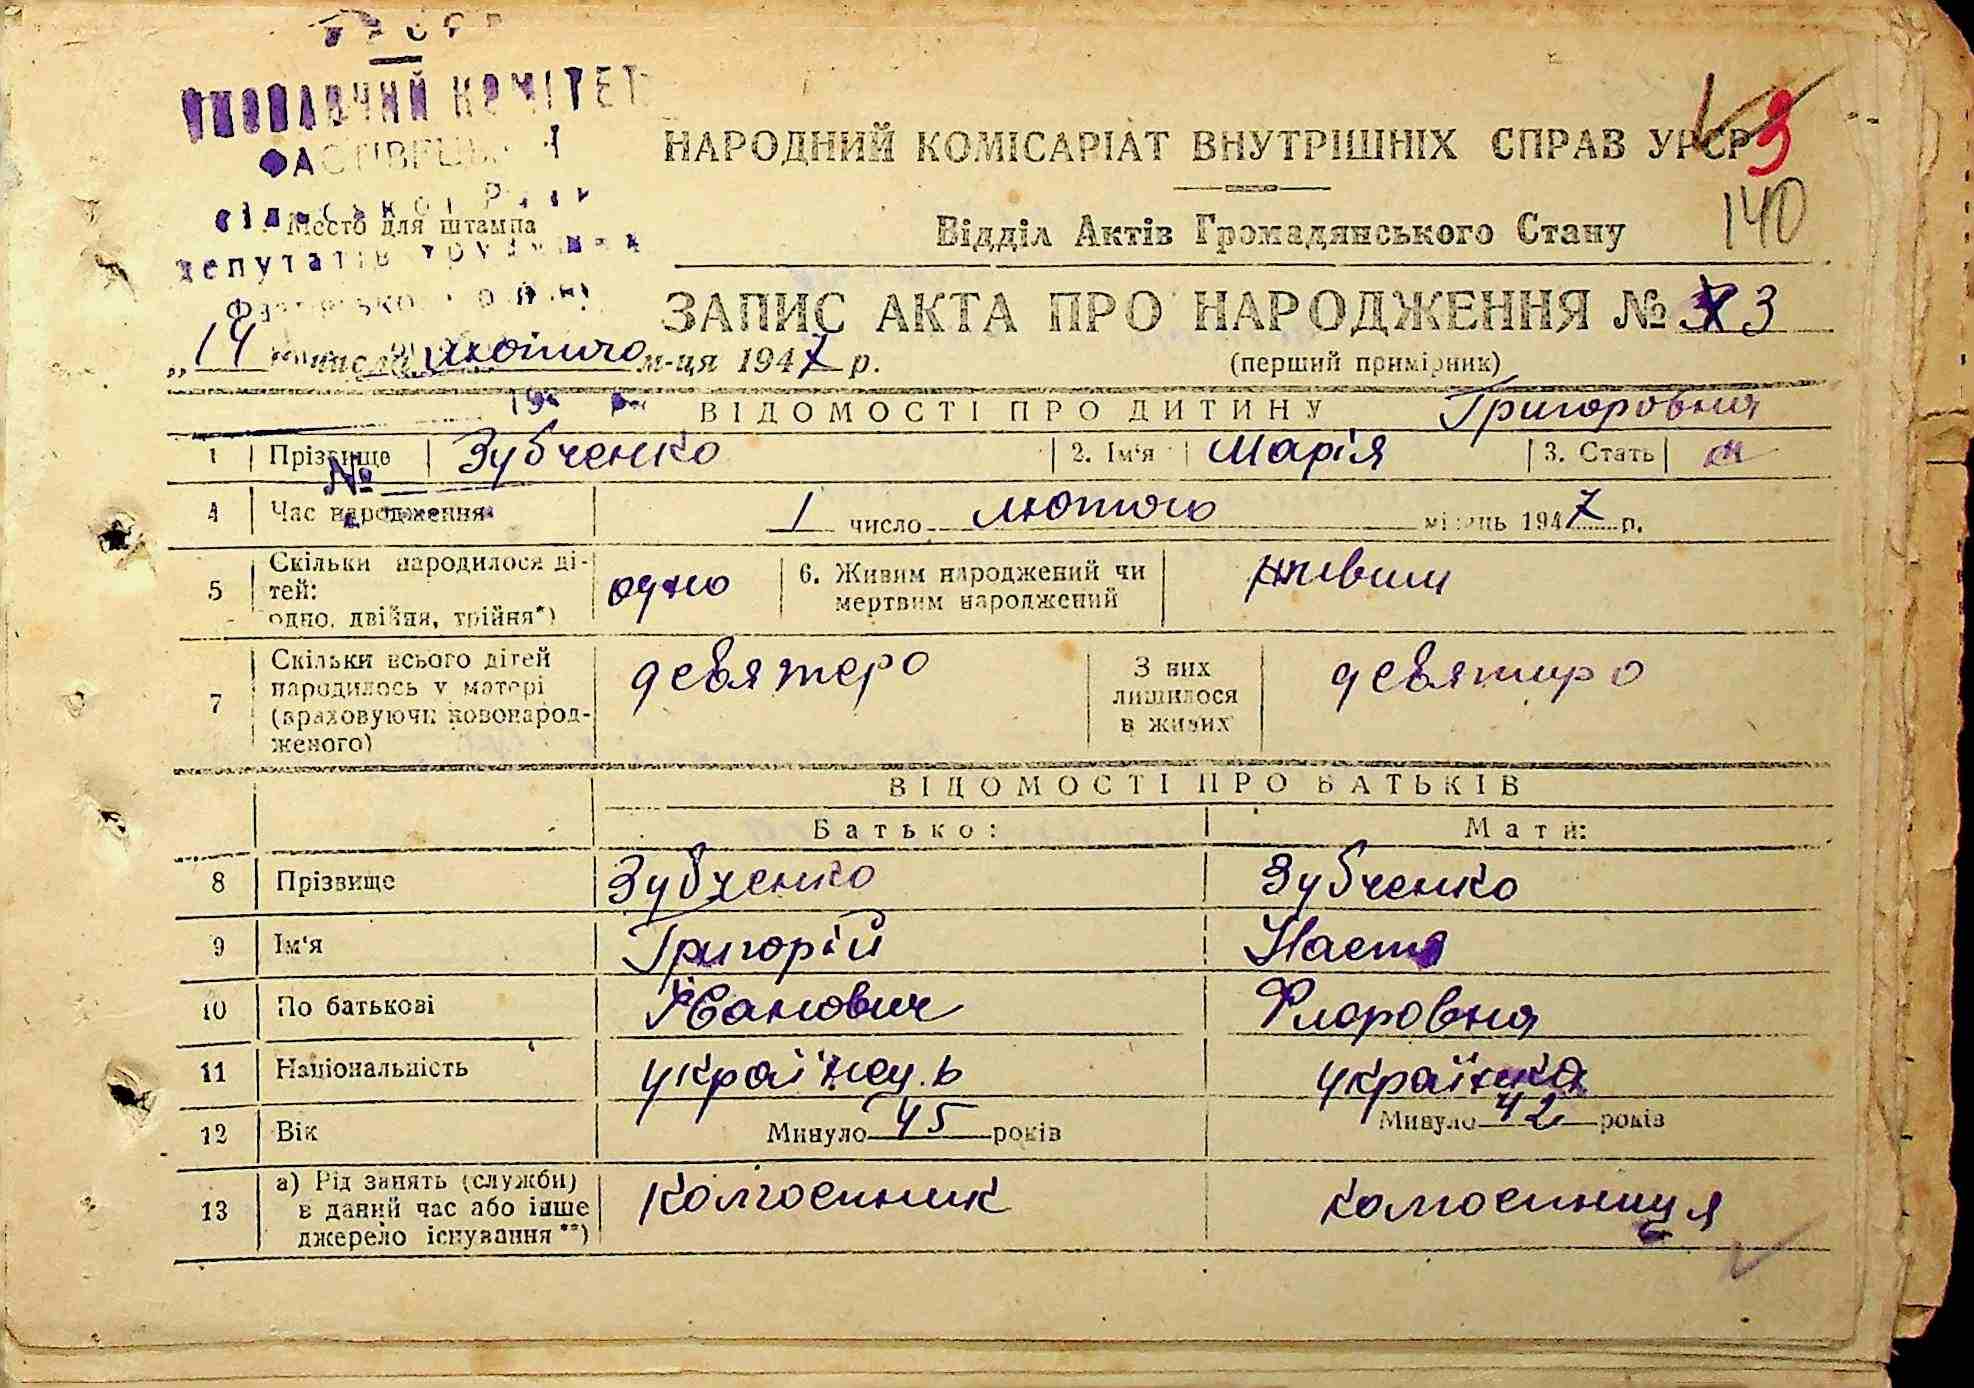 УРСР
ВИКОНАВЧИЙ КОМІТЕТ
ФАСТІВЕЦЬКОЇ
сільської Ради
Место для штампа
депутатів трудящих
НАРОДНИЙ КОМІСАРІАТ ВНУТРІШНІХ СПРАВ УРСР
3
140
Відділ Актів Громадянського Стану
ЗАПИС АКТА ПРО НАРОДЖЕННЯ № 3
(перший примірник)
„14 числа лютого м-ця 1947 р.
19 р.
ВІДОМОСТІ ПРО ДИТИНУ Григоровня
1 Прізвище Зубченко 2. Ім'я Марія 3. Стать
№
4 Час народження 1 число лютого місяць 1947 р.
5 Скільки народилося ді-
тей:
одно, двійня, трійня*)
одно
6. Живим народжений чи
мертвим народжений
живим
7 Скільки всього дітей
народилось у матері
(враховуючи новонарод-
женого)
девятеро
З них
лишилося
в живих
девятиро
ВІДОМОСТІ ПРО БАТЬКІВ
Батько: Мати:
8 Прізвище Зубченко Зубченко
9 Ім'я Григорій Настя
10 По батькові Іванович Флоровна
11 Національність українець українка
12 Вік Минуло 45 років Минуло 42 років
13 а) Рід занять (служби)
в даний час або інше
джерело існування **)
колгоспник колгоспниця